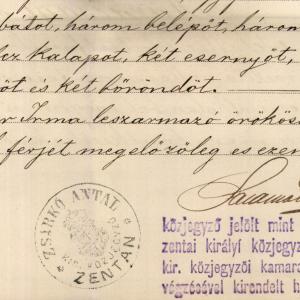 bátot, három belépőt, három
hoz kalapot, két esernyőt,
öt és két bőröndöt.
r Irma leszarmazó örökös
férjét megelőzőleg es ezen
ZSARKÓ ANTAL
KIR. KÖZJEGYZŐ
ZENTÁN
közjegyző jelölt mint
zentai királyi közjegyz
kir. közjegyzői kamara
végzésével kirendelt h